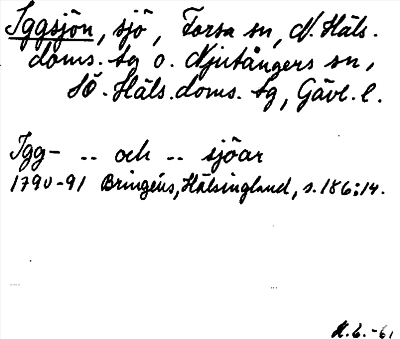 Iggsjön, sjö, Forsa sn, N. Häls.
doms. sg o. Njutångers sn,
SÖ. Häls. doms. sg, Gävl. l.
Igg- .. och .. sjöar
1790-91 Bringéus, Hälsingland, s. 186:14.
-61